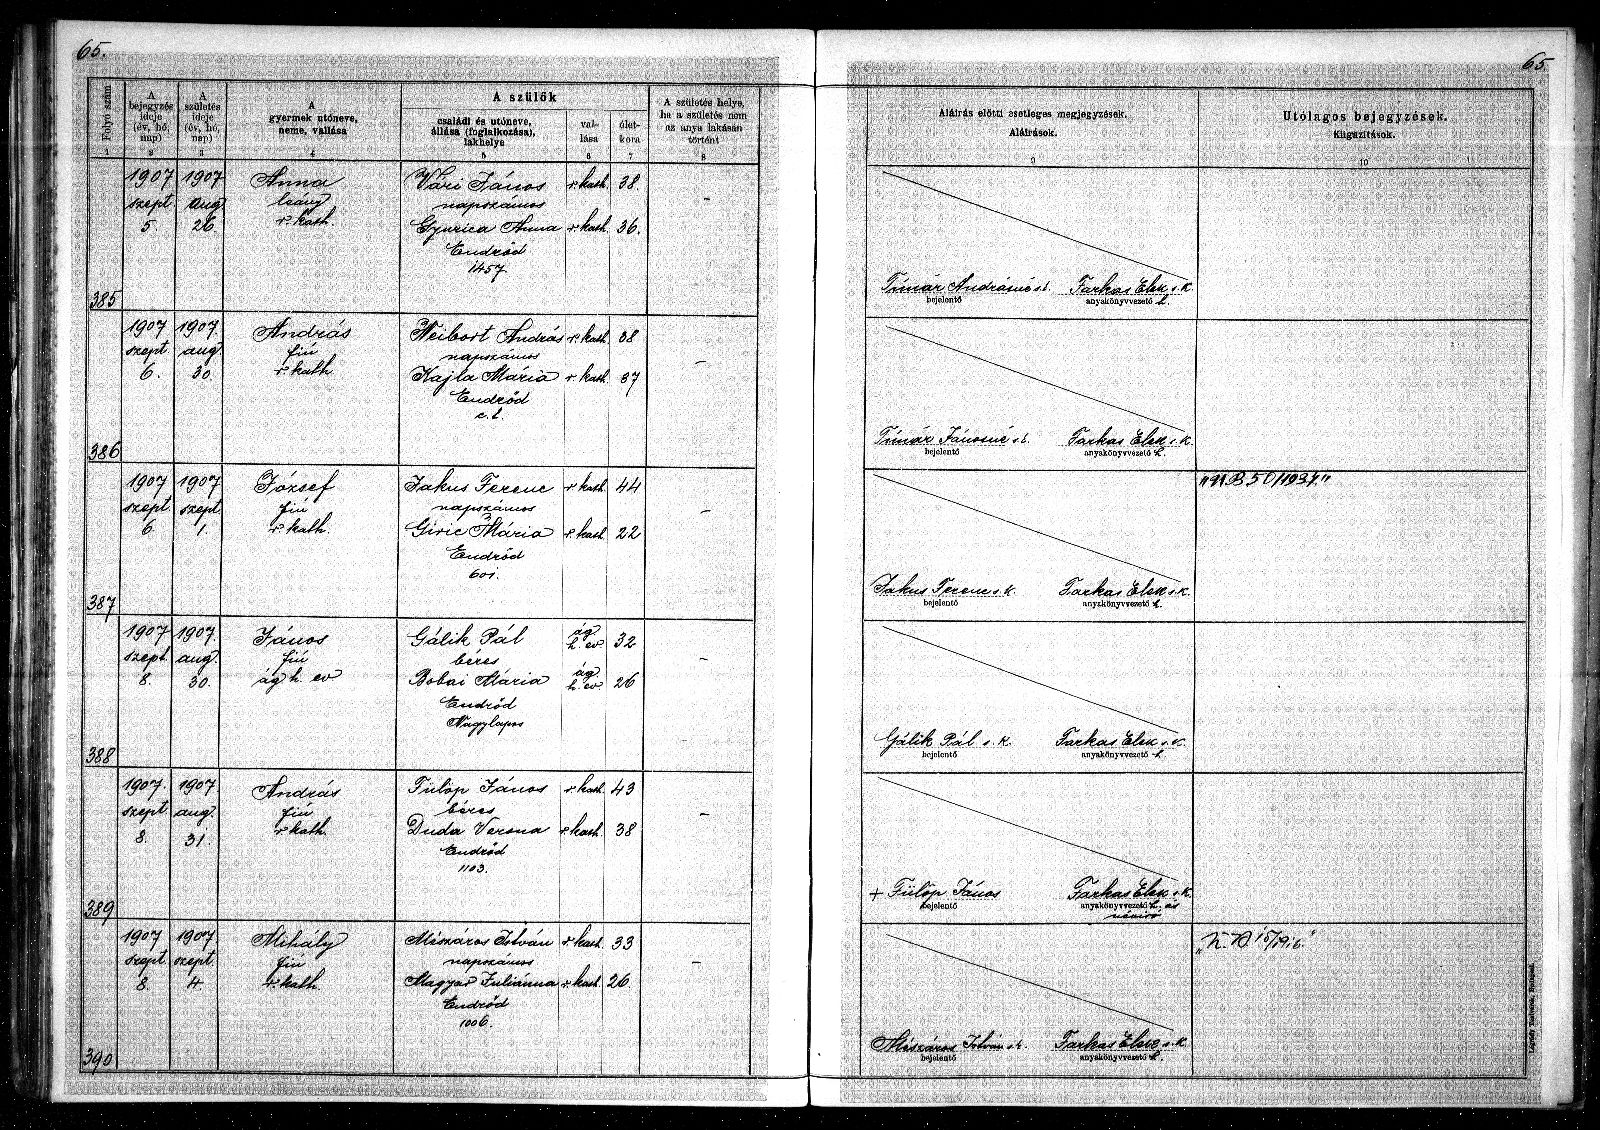 65.
65.
Folyó szám
A bejegyzés ideje (év, hó, nap)
A születés ideje (év, hó, nap)
A gyermek utóneve, neme, vallása
A szülők
családi és utóneve, állása (foglalkozása), lakhelye
val-lása
élet-kora
A születés helye, ha a születés nem az anya lakásán történt
Aláírás előtti esetleges megjegyzések.
Aláírások.
Utólagos bejegyzések.
Kiigazítások.
1 2 3 4 5 6 7 8 9 10
1907 1907 Anna Vári János r. kath. 38.
szept aug leány napszámos -
5. 26. r. kath. Gyurica Anna r. kath. 36.
Endrőd
1457
385 Tímár Andrásné s. k. Farkas Elek s. k.
bejelentő anyakönyvvezető h.
1907 1907. András Weibort András r. kath. 38
szept aug. fiú napszámos -
6. 30. r. kath. Kajla Mária r. kath. 37
Endrőd
386 Tímár Jánosné Farkas Elek s. k.
bejelentő anyakönyvvezető h.
1907 1907 József Jakus Ferenc r. kath. 44 "50/1934"
szept szept fiú napszámos -
6. 1. r. kath. Giric Mária r. kath. 22
Endrőd
601.
387 Jakus Ferenc s. k. Farkas Elek s. k.
bejelentő anyakönyvvezető h.
1907 1907. János Gálik Pál ág. h. ev. 32
szept. aug. fiú béres -
8. 30. ág. h. ev Bobai Mária ág. h. ev. 26
Endrőd
Nagylapos
388 Gálik Pál s. k. Farkas Elek s. k.
bejelentő anyakönyvvezető h.
1907. 1907 András Fülöp János r. kath. 43
szept aug. fiú béres -
8. 31. r. kath. Duda Verona r. kath. 38
Endrőd
1103.
389 + Fülöp János Farkas Elek s. k.
bejelentő anyakönyvvezető h. és
névíró
1907 1907 Mihály Mészáros István r. kath. 33
szept. szept. fiú napszámos -
8. 4. r. kath. Magyar Juliánna r. kath. 26.
Endrőd
1006.
390 Mészáros István Farkas Elek s. k.
bejelentő anyakönyvvezető h.